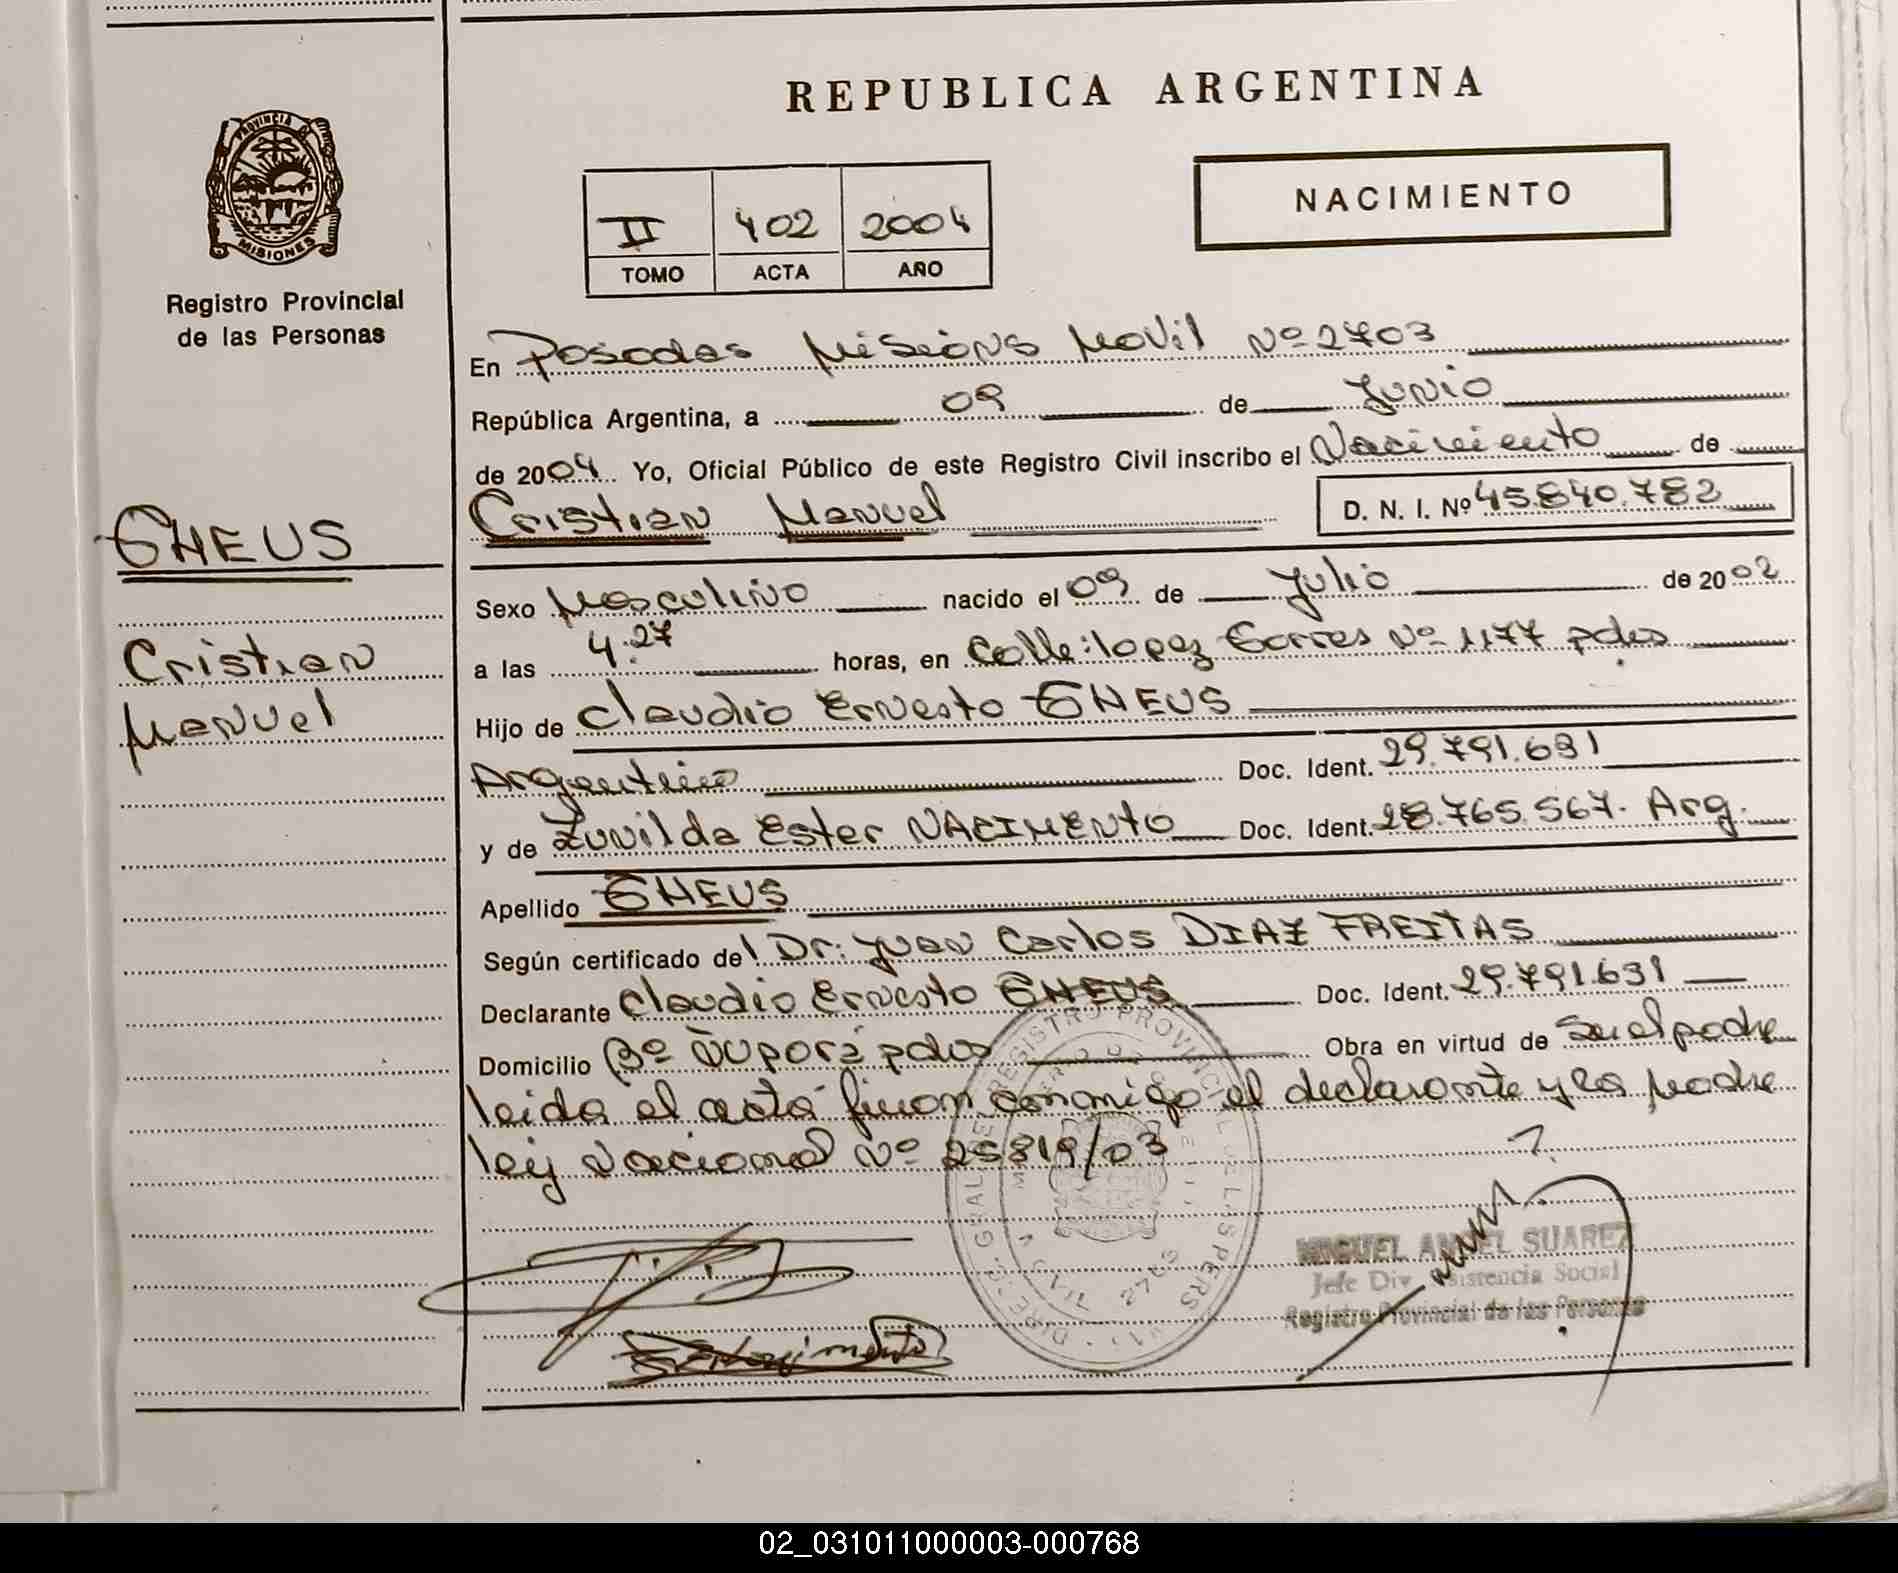 REPUBLICA ARGENTINA
PROVINCIA DE
MISIONES
Registro Provincial
de las Personas
NACIMIENTO
II 402 2004
TOMO ACTA AÑO
En Posadas Misions Movil Nº 2703
República Argentina, a 09 de Junio
de 2004 Yo, Oficial Público de este Registro Civil inscribo el Nacimiento de
Cristian Manuel D. N. I. Nº 45.840.782
GHEUS
Cristian
Manuel
Sexo Masculino nacido el 09 de Julio de 2002
a las 4:27 horas, en Calle: lopez Torres Nº 1177 pdas
Hijo de Claudio Ernesto GHEUS
Argentino Doc. Ident. 29.791.631
y de Zunilda Ester NACIMENTO Doc. Ident. 28.765.567. Arg.
Apellido GHEUS
Según certificado del Dr: Juan Carlos DIAZ FREITAS
Declarante Claudio Ernesto GHEUS Doc. Ident. 29.791.631
Domicilio Bº Ñuporá pdas Obra en virtud de Su el padre
leida el acta firman conmigo el declarante y la madre
ley Nacional Nº 25819/03
MIGUEL ANGEL SUAREZ
Jefe Div. Asistencia Social
Registro Provincial de las Personas
02_031011000003-000768